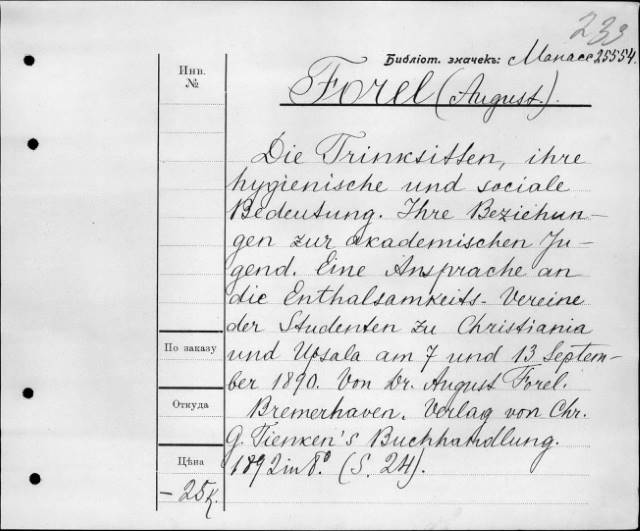 233
Библіот. значекъ: Манасе 25554.
Инв.
№
Forel (August).
Die Trinksitten, ihre
hygienische und sociale
Bedeutung. Ihre Beziehun-
gen zur akademischen Ju-
gend. Eine Ansprache an
die Enthaltsamkeits-Vereine
der Studenten zu Christiania
По заказу
und Upsala am 7 und 13 Septem-
ber 1890. Von Dr. August Forel.
Откуда
Bremerhaven. Verlag von Chr.
G. Tienken's Buchhandlung.
Цѣна
1892 in 8º. (S. 24).
– 25 к.